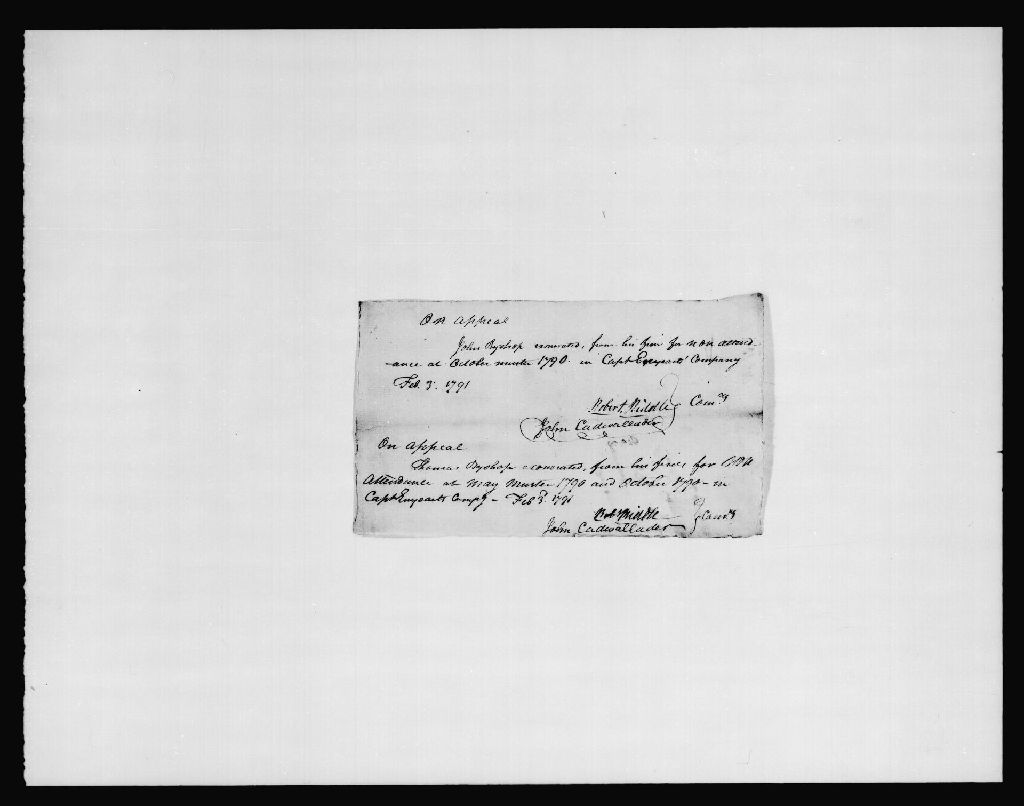 On Appeal
John Byshop exonerated, from his fine for non attend-
-ance at October muster 1790 in Capt Enyearts Company
Feb. 3. 1791
Robert Riddle Com rs
John Cadwallader
On Appeal
Thomas Byshop exonerated, from his fines for
Attendance at May Muster 1790 and October 1790 - in
Capt Enyearts Compy - Feb 3 1791
Robt Riddle Com rs
John Cadwallader